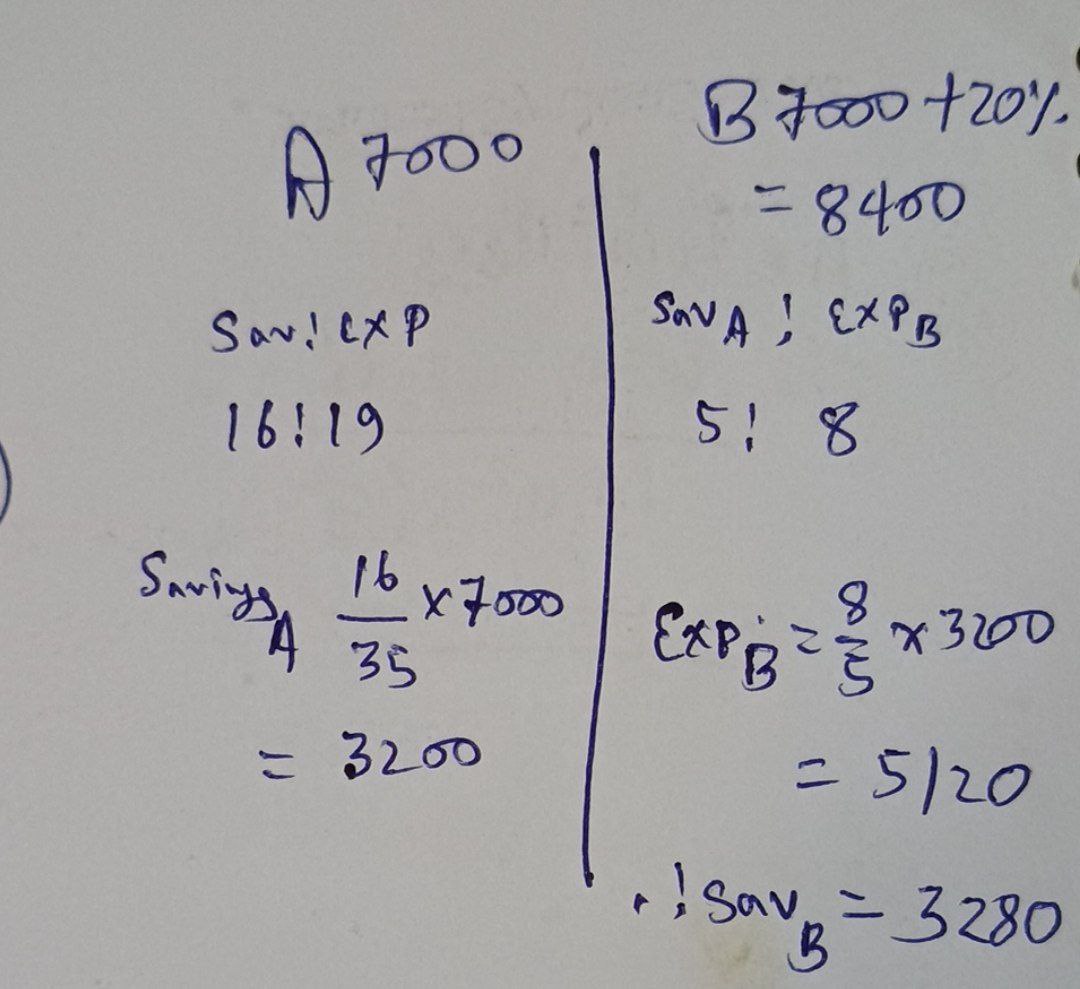 A 7000
Sav: exp
16:19
Savings A 16/35 x 7000
= 3200
B 7000 + 20%
= 8400
Sav A : Exp B
5: 8
Exp B = 8/5 x 3200
= 5120
∴ Sav B = 3280